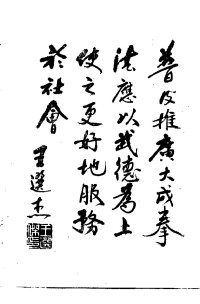 普及推廣大成拳
法應以武德為上
使之更好地服務
於社會
王選杰